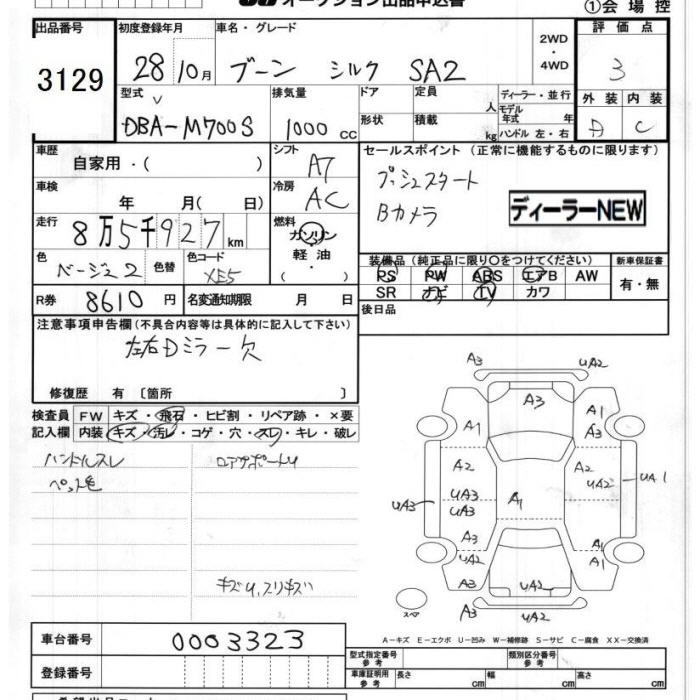 オークション出品申込書
①会場控
出品番号
3129
初度登録年月
28年10月
車名・グレード
ブーン シルク SA2
2WD
・
4WD
評価点
3
外装 内装
D C
型式
DBA-M700S
排気量
1000 CC
ドア
形状
定員 人
積載 kg
ディーラー・並行
モデル
年式 年
ハンドル 左・右
車歴
自家用・( )
シフト
AT
車検
年 月( 日)
冷房
AC
走行
8万5千927 km
燃料
ガソリン
軽油・
( )
色
ベージュ2
色替
色コード
XE5
R券
8610 円
名変通知期限 月 日
セールスポイント (正常に機能するものに限ります)
プッシュスタート
Bカメラ
ディーラーNEW
装備品(純正品に限り〇をつけてください)
新車保証書
PS PW ABS エアB AW
SR ナビ TV カワ
有・無
後日品
注意事項申告欄(不具合内容等は具体的に記入して下さい)
左右Dミラー欠
修復歴 有〔箇所 〕
検査員
記入欄
FW キズ・飛石・ヒビ割・リペア跡・×要
内装 キズ・汚レ・コゲ・穴・スレ・キレ・破レ
ハンドルスレ
キズU,スリキズ
A3
UA2
A3
A1
A1
A3
A2
A2
UA2
UA1
UA3
UA3
UA3
A1
A3
A1
A1
UA2
A3
UA2
A3
UA2
スペア
A-キズ E-エクボ U-凹み W-補修跡 S-サビ C-腐食 XX-交換済
車台番号
0003323
登録番号
型式指定番号
参考
類別区分番号
参考
車庫証明用
参考
長さ cm
幅 cm
高さ cm